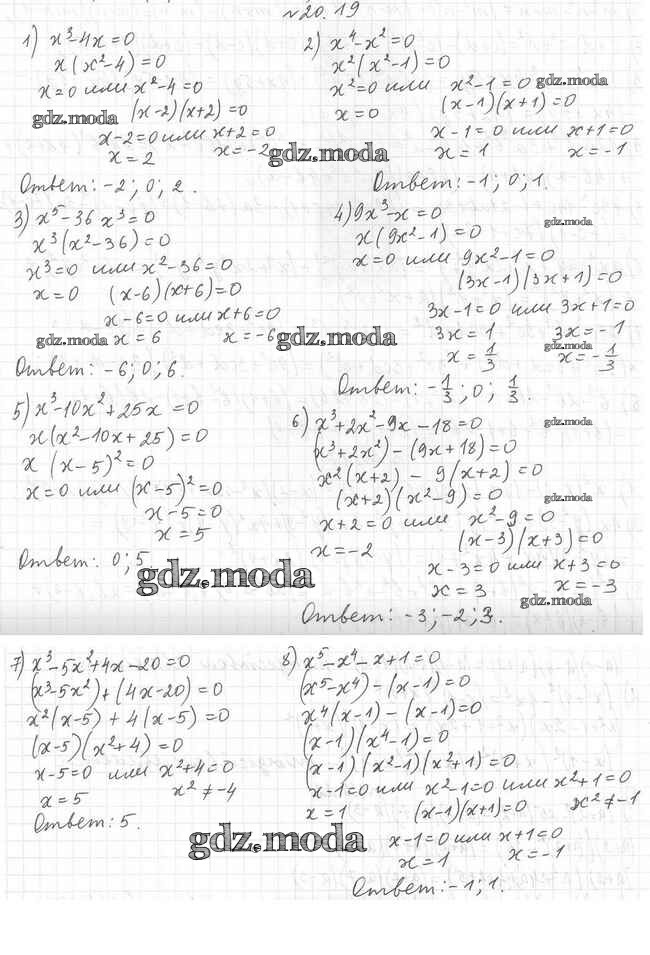 №20.19
1) x³-4x=0
x(x²-4)=0
x=0 или x²-4=0
(x-2)(x+2)=0
x-2=0 или x+2=0
x=2 x=-2
Ответ: -2; 0; 2.
2) x⁴-x²=0
x²(x²-1)=0
x²=0 или x²-1=0
x=0 (x-1)(x+1)=0
x-1=0 или x+1=0
x=1 x=-1
Ответ: -1; 0; 1.
3) x⁵-36x³=0
x³(x²-36)=0
x³=0 или x²-36=0
x=0 (x-6)(x+6)=0
x-6=0 или x+6=0
x=6 x=-6
Ответ: -6; 0; 6.
4) 9x³-x=0
x(9x²-1)=0
x=0 или 9x²-1=0
(3x-1)(3x+1)=0
3x-1=0 или 3x+1=0
3x=1 3x=-1
x=1/3 x=-1/3
Ответ: -1/3; 0; 1/3.
5) x³-10x²+25x=0
x(x²-10x+25)=0
x(x-5)²=0
x=0 или (x-5)²=0
x-5=0
x=5
Ответ: 0; 5.
6) x³+2x²-9x-18=0
(x³+2x²)-(9x+18)=0
x²(x+2)-9(x+2)=0
(x+2)(x²-9)=0
x+2=0 или x²-9=0
x=-2 (x-3)(x+3)=0
x-3=0 или x+3=0
x=3 x=-3
Ответ: -3; -2; 3.
7) x³-5x²+4x-20=0
(x³-5x²)+(4x-20)=0
x²(x-5)+4(x-5)=0
(x-5)(x²+4)=0
x-5=0 или x²+4=0
x=5 x²≠-4
Ответ: 5.
8) x⁵-x⁴-x+1=0
(x⁵-x⁴)-(x-1)=0
x⁴(x-1)-(x-1)=0
(x-1)(x⁴-1)=0
(x-1)(x²-1)(x²+1)=0
x-1=0 или x²-1=0 или x²+1=0
x=1 (x-1)(x+1)=0 x²≠-1
x-1=0 или x+1=0
x=1 x=-1
Ответ: -1; 1.
gdz.moda
gdz.moda
gdz.moda
gdz.moda
gdz.moda
gdz.moda
gdz.moda
gdz.moda
gdz.moda
gdz.moda
gdz.moda
gdz.moda